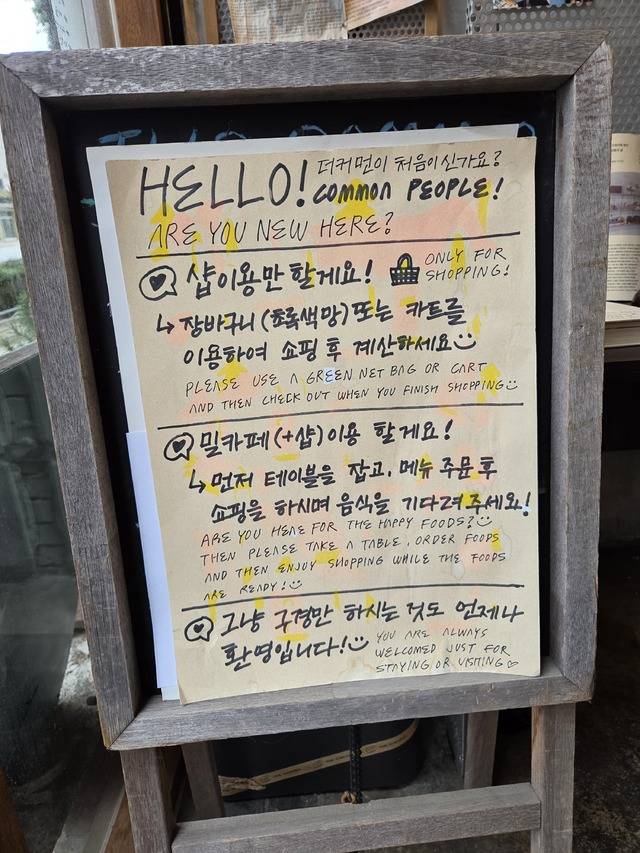 HELLO! 더커먼이 처음이신가요?
COMMON PEOPLE!
ARE YOU NEW HERE?
샵이용만 할게요! ONLY FOR
SHOPPING!
↳ 장바구니(초록색망)또는 카트를
이용하여 쇼핑 후 계산하세요
PLEASE USE A GREEN NET BAG OR CART
AND THEN CHECK OUT WHEN YOU FINISH SHOPPING
밀카페(+샵)이용 할게요!
↳ 먼저 테이블을 잡고, 메뉴 주문 후
쇼핑을 하시며 음식을 기다려주세요!
ARE YOU HERE FOR THE HAPPY FOODS?
THEN PLEASE TAKE A TABLE, ORDER FOODS
AND THEN ENJOY SHOPPING WHILE THE FOODS
ARE READY!
그냥 구경만 하시는 것도 언제나
환영입니다! YOU ARE ALWAYS
WELCOMED JUST FOR
STAYING OR VISITING